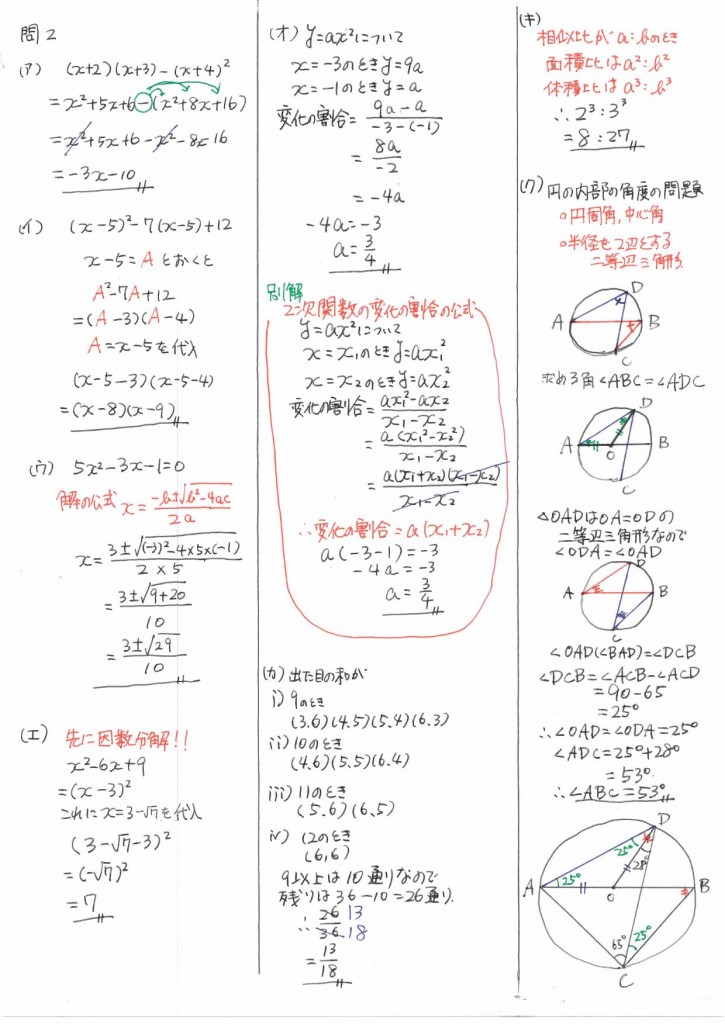 問2
(ア) (x+2)(x+3)-(x+4)²
=x²+5x+6-(x²+8x+16)
=x²+5x+6-x²-8x-16
=-3x-10
(イ) (x-5)²-7(x-5)+12
x-5=Aとおくと
A²-7A+12
=(A-3)(A-4)
A=x-5を代入
(x-5-3)(x-5-4)
=(x-8)(x-9)
(ウ) 5x²-3x-1=0
解の公式 x=(-b±√(b²-4ac))/2a
x=(3±√((-3)²-4×5×(-1)))/(2×5)
=(3±√(9+20))/10
=(3±√29)/10
(エ) 先に因数分解!!
x²-6x+9
=(x-3)²
これにx=3-√7を代入
(3-√7-3)²
=(-√7)²
=7
(オ) y=ax²について
x=-3のときy=9a
x=-1のときy=a
変化の割合=(9a-a)/(-3-(-1))
=8a/-2
=-4a
-4a=-3
a=3/4
別解
2次関数の変化の割合の公式
y=ax²について
x=x₁のときy=ax₁²
x=x₂のときy=ax₂²
変化の割合=(ax₁²-ax₂)/(x₁-x₂)
=a(x₁²-x₂²)/(x₁-x₂)
=a(x₁+x₂)(x₁-x₂)/(x₁-x₂)
∴変化の割合=a(x₁+x₂)
a(-3-1)=-3
-4a=-3
a=3/4
(カ) 出た目の和が
i) 9のとき
(3.6)(4.5)(5.4)(6.3)
ii) 10のとき
(4.6)(5.5)(6.4)
iii) 11のとき
(5.6)(6.5)
iv) 12のとき
(6,6)
9以上は10通りなので
残りは36-10=26通り.
∴26/36 13/18
=13/18
(キ)
相似比がa:bのとき
面積比はa²:b²
体積比はa³:b³
∴2³:3³
=8:27
(ク) 円の内部の角度の問題
○円周角,中心角
○半径を2辺とする
二等辺三角形
D
A
B
C
求める角∠ABC=∠ADC
D
A
O
B
C
△OADはOA=ODの
二等辺三角形なので
∠ODA=∠OAD
D
A
B
C
∠OAD(∠BAD)=∠DCB
∠DCB=∠ACB-∠ACD
=90-65
=25°
∴∠OAD=∠ODA=25°
∠ADC=25°+28°
=53°.
∴∠ABC=53°
D
25°
28°
A
25°
O
B
65°
25°
C